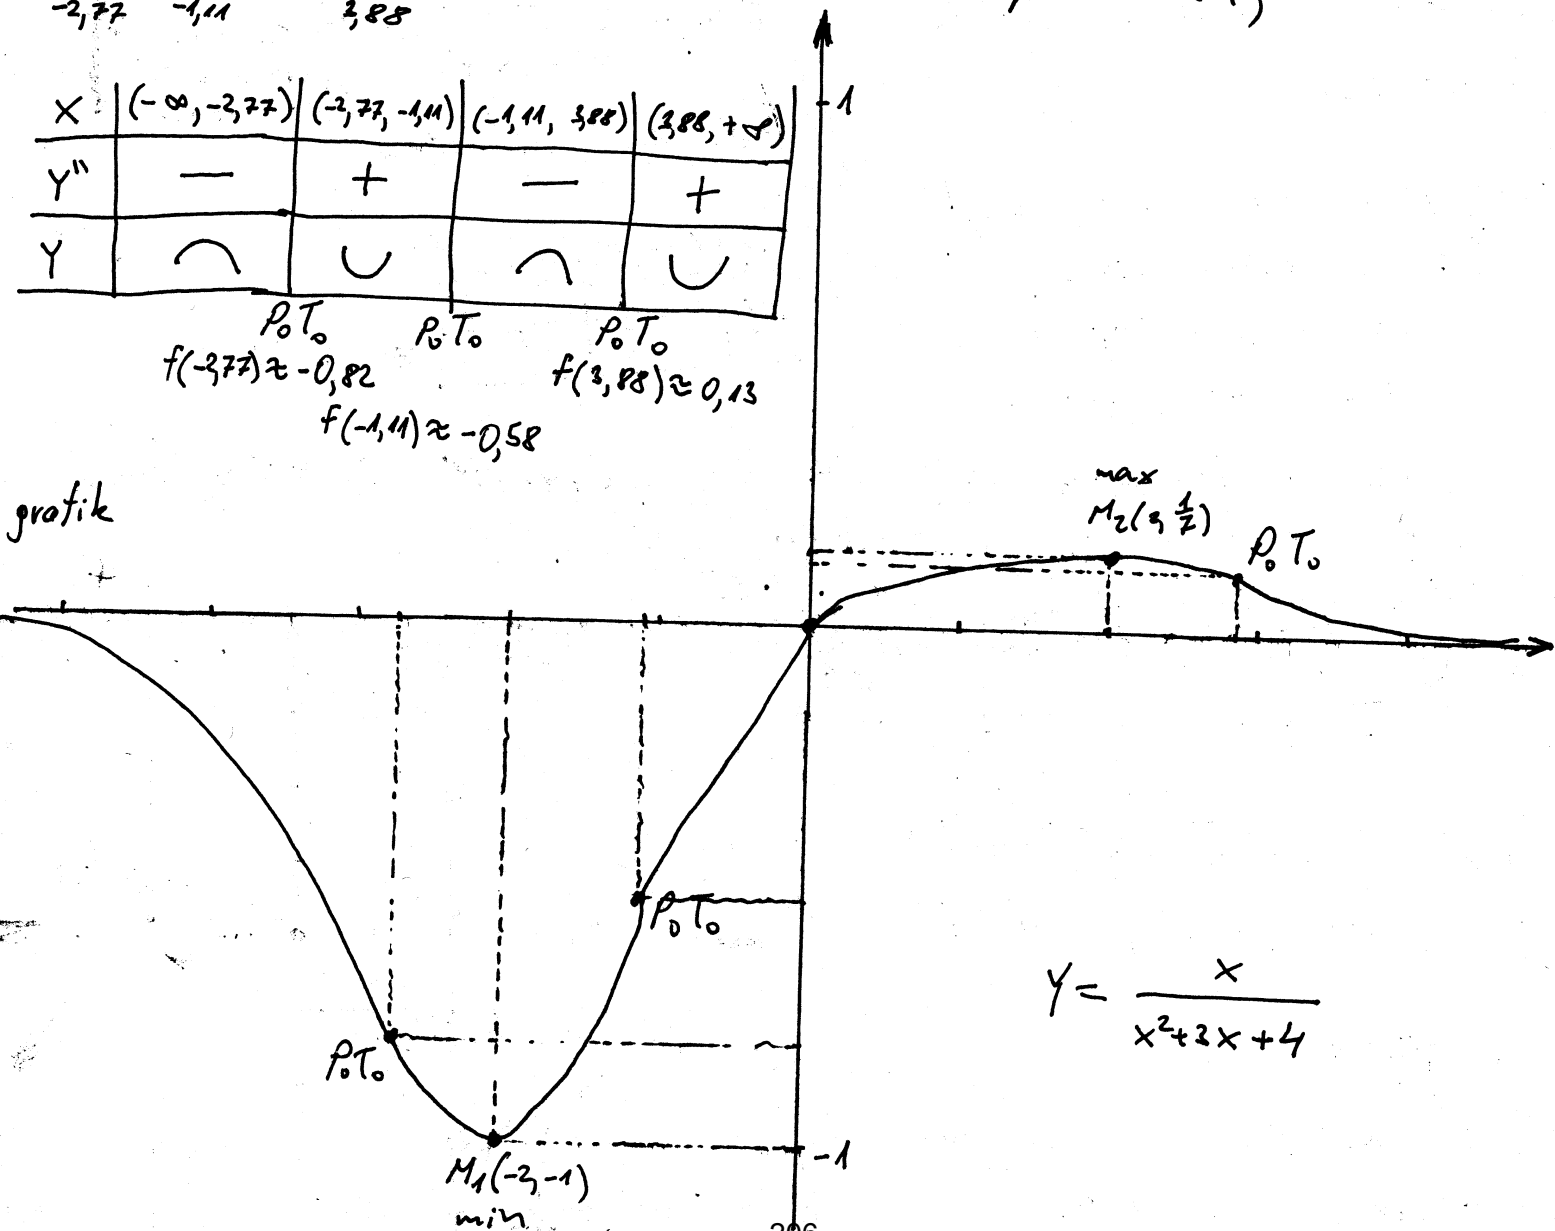 -2,77 -1,11 3,88
X (-∞,-2,77) (-2,77,-1,11) (-1,11, 3,88) (3,88,+∞)
Y" — + — +
Y ⌒ ∪ ⌒ ∪
P₀T₀ P₀T₀ P₀T₀
f(-2,77)≈-0,82 f(3,88)≈0,13
f(-1,11)≈-0,58
1
grafik
max
M₂(2, 1/7)
P₀T₀
P₀T₀
P₀T₀
Y = x / (x²+3x+4)
M₁(-2,-1)
min
-1
206